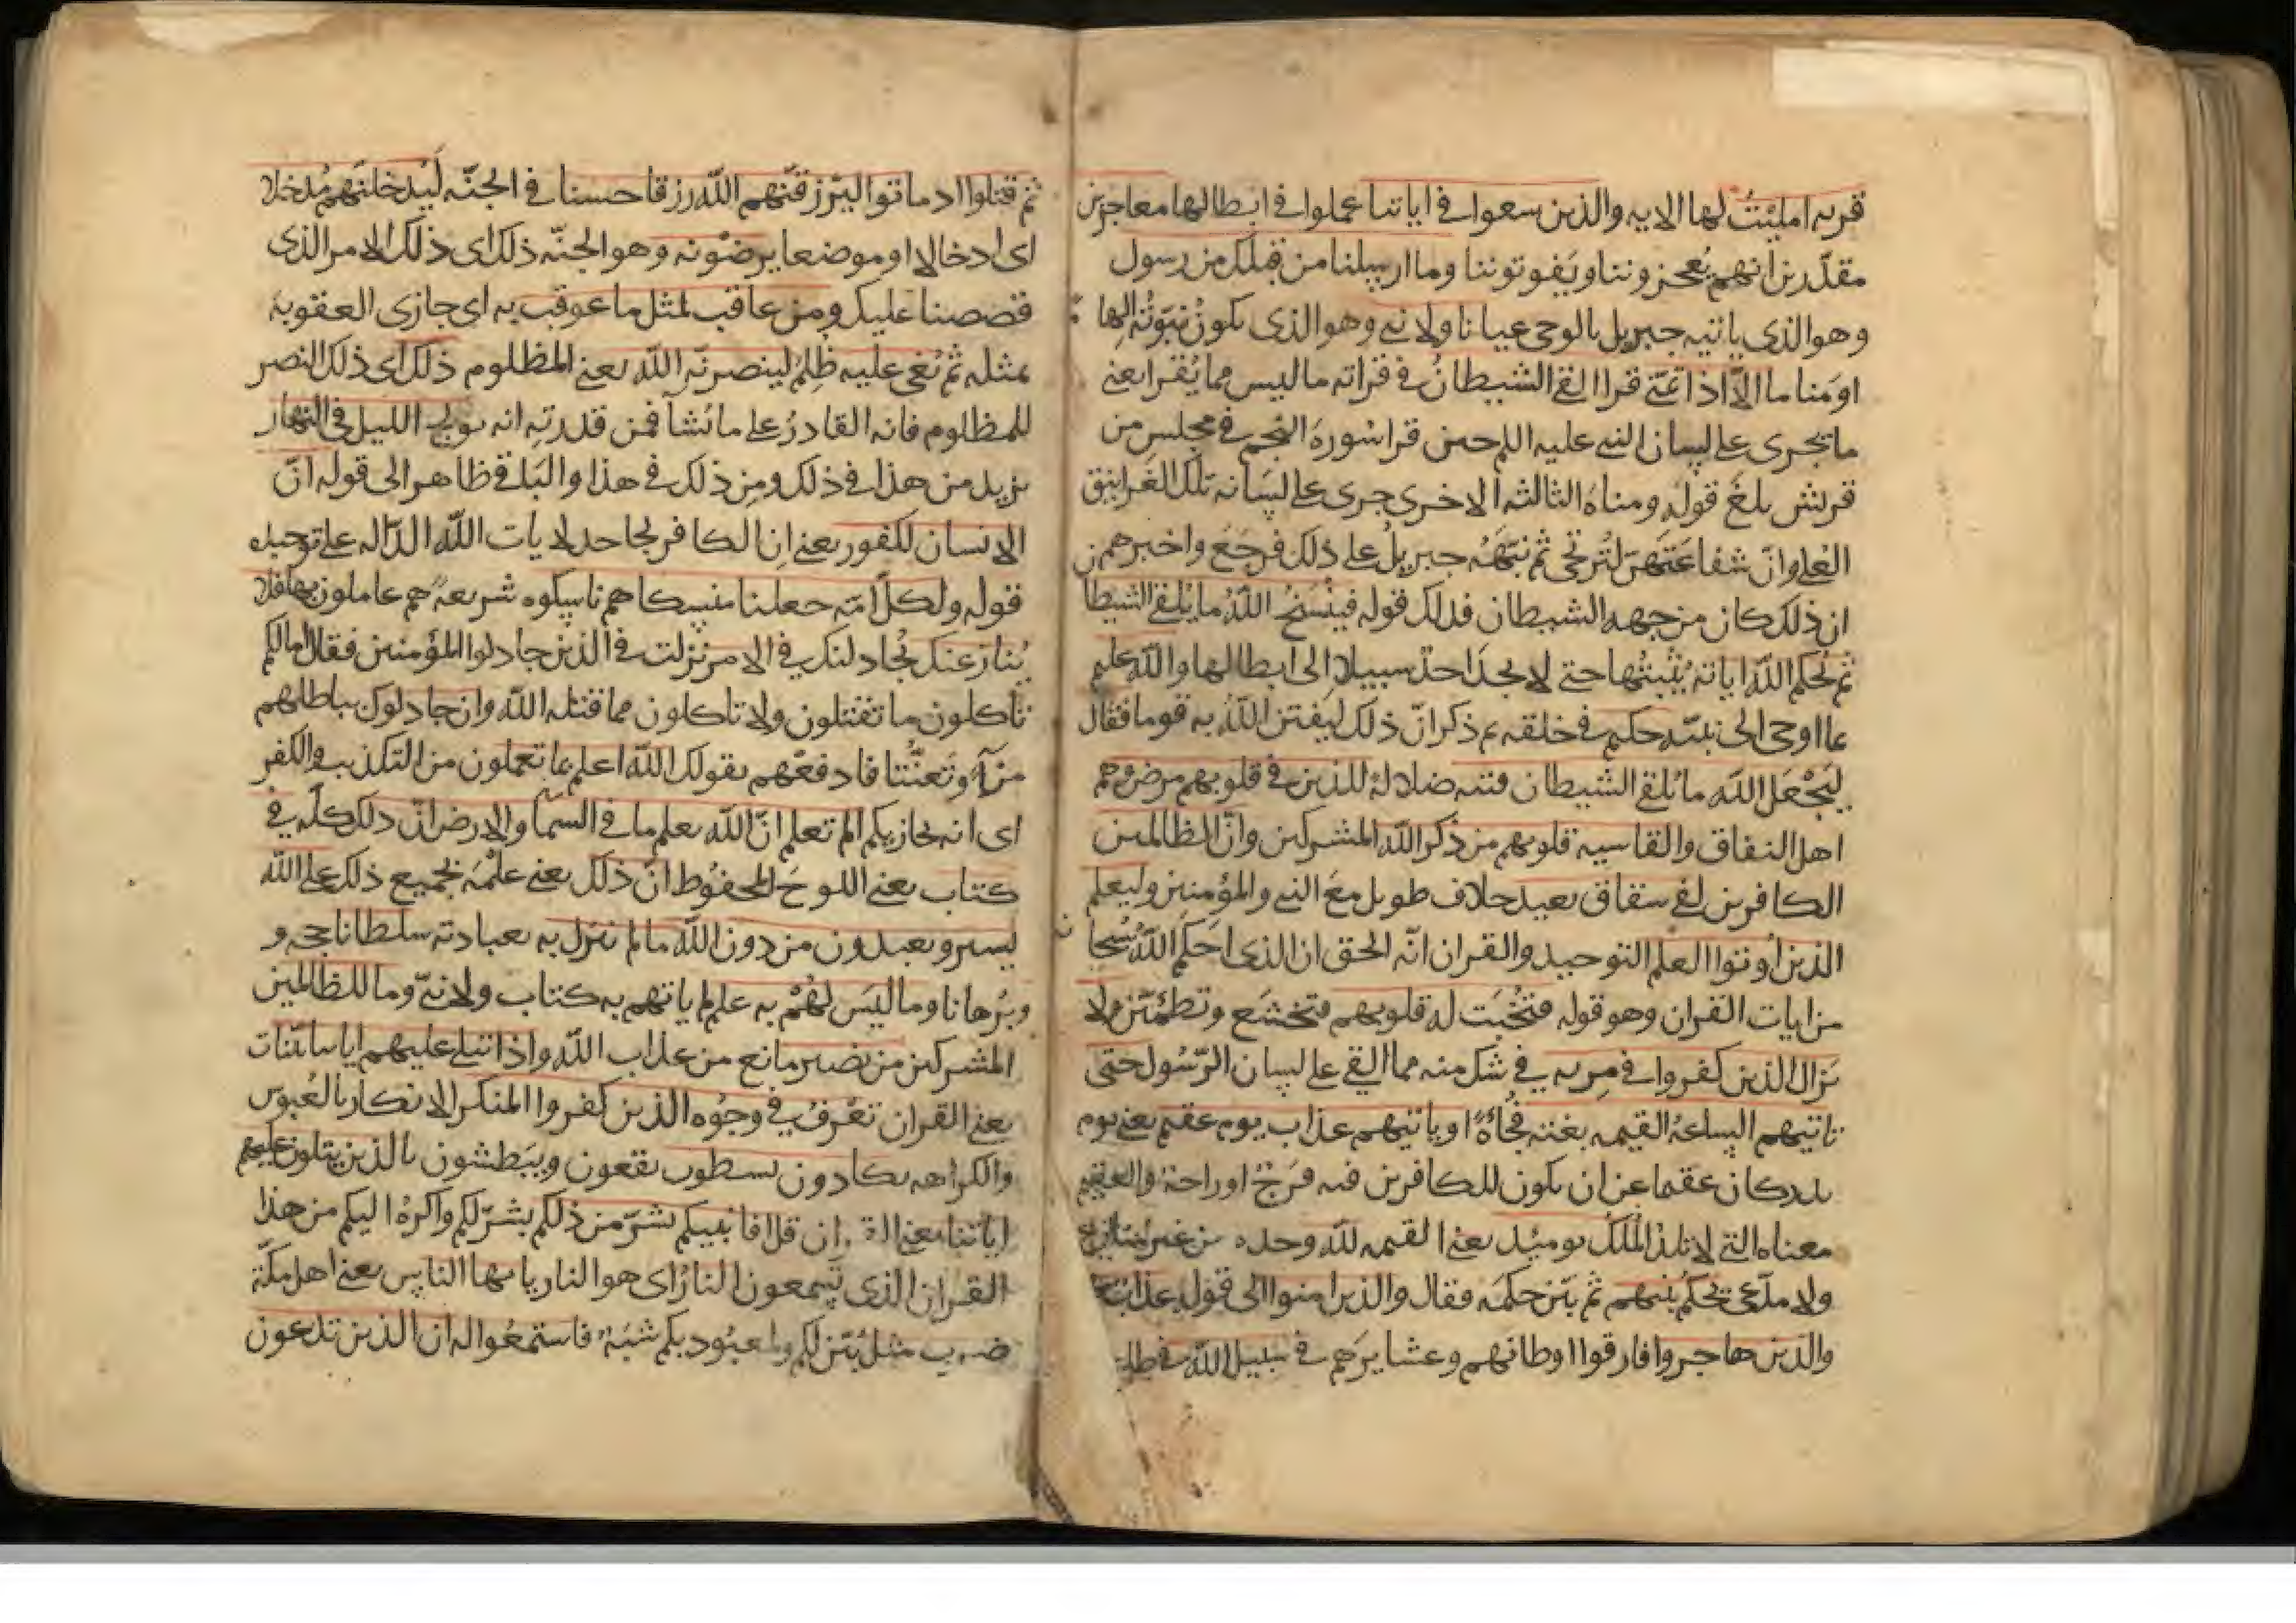 قريه امليت لها الايه والذين سعوا في اياتنا عملوا في ابطالها معاجزين
مقدّرين انهم يُعجزوننا ويَفوتوننا وما ارسلنا من قبلك من رسول
وهو الذي ياتيه جبريل بالوحى عيانا ولا نبي وهو الذي يكون نبوّته الهاما
او مناما الّا اذا تمنّى قرا القى الشيطان في قراته ما ليس مما يُقرا يعنى
ما يجرى على لسان النبى عليه السلم حين قرا سُورة النجم في مجلس من
قريش بلغ قوله ومناة الثالثة الاخرى جرى على لسانه تلك الغرانيق
العُلى وانّ شفاعتهنّ لتُرتجى ثم نبّهَهُ جبريل على ذلك فرجع واخبرهم
ان ذلك كان من جهه الشيطان فذلك قوله فينسخ الله ما يُلقى الشيطا
ثم يُحكم الله اياته يُثبتها حتى لا يجد احد سبيلا الى ابطالها والله عليم
بما اوحى الى نبيّه حكيم في خلقه ثم ذكر انّ ذلك ليفتن الله به قوما فقال
ليَجْعَل الله ما يُلقى الشيطان فتنه ضلالةً للذين في قلوبهم مرض وهم
اهل النفاق والقاسيه قلوبهم من ذكر الله المشركين وانّ الظالمين
الكافرين لفى شقاق بعيد خلاف طويل مع النبى والمؤمنين وليعلم
الذين اوتوا العلم التوحيد والقران انّه الحق ان الذى احكم الله سُبحا
من ايات القران وهو قوله فتُخبت له قلوبهم فتخشع وتطمئن ولا
يزال الذين كفروا في مريه في شك منه مما القى على لسان الرّسُول حتى
تاتيهم الساعة القيمه بغته فُجاءةً او ياتيهم عذاب يوم عقيم يعنى يوم
بدر كان عقيما عن ان يكون للكافرين فيه فَرَجٌ او راحة والعقيم
معناه التى لا تلد المُلك يوميذ يعنى القيمه لله وحده من غير منازع
ولا مدّعى يحكم بينهم ثم بيّن حكمه فقال والذين امنوا الى قوله عذاب
والذين هاجروا فارقوا اوطانهم وعشايرهم في سبيل الله في طاعة
ثم قتلوا او ماتوا ليرزقنّهم الله رزقا حسنا في الجنّه لَيُدخلنّهم مُدخلا
اى ادخالا او موضعا يرضَوْنه وهو الجنّه ذلك اى ذلك الامر الذى
قصصنا عليك ومن عاقب بمثل ما عوقب به اى جازى العقوبة
بمثله ثم بُغى عليه ظُلم لينصرنّه الله يعنى المظلوم ذلك اى ذلك النصر
للمظلوم فانه القادرُ على ما يشآ فمن قدرته انه يولج الليل في النهار
يزيد من هذا في ذلك ومن ذلك في هذا والباقى ظاهر الى قوله انّ
الانسان لكفور يعنى ان الكافر لجاحد لايات الله الدّاله على توحيده
قوله ولكل امّة جعلنا منسكا هم ناسكوه شريعةً هم عاملون بها فلا
يُنازعنك يُجادلنك في الامر نزلت في الذين جادلوا المؤمنين فقال ما لكم
تاكلون ما تقتلون ولا تاكلون مما قتله الله وان جادلوك بباطلهم
مرآءً وتعنُّتا فادفعهم بقولك الله اعلم بما تعملون من التكذيب والكفر
اى انه يجازيكم الم تعلم انّ الله يعلم ما في السمآ والارض انّ ذلك كلّه في
كتاب يعنى اللوح المحفوظ انّ ذلك يعنى علمُه بجميع ذلك على الله
يسير ويعبدون من دون الله ما لم ننزل به بعبادته سلطانا حجه و
وبُرهانا وما ليس لهُمْ به علم لم ياتهم به كتاب ولا نبيّ وما للظالمين
المشركين من نصير مانع من عذاب الله واذا تتلى عليهم اياتنا بيّنات
يعنى القران تعْرفُ في وجُوه الذين كفروا المنكر الانكار بالعُبوس
والكراهه يكادون يسطون يقعون ويَبطشون بالذين يتلون عليهم
اياتنا يعنى القران قل افانبيكم بشرّ من ذلكم بشرّ لكم واكره اليكم من هذا
القران الذى تسمعون النار اى هو النار يا ايها الناس يعنى اهل مكّة
ضرب مثل بُيّن لكم ولمعبُودكم شَبَهٌ فاستمعُوا له ان الذين تدعون